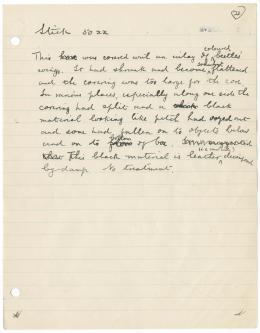 (2)
Stick 50 zz
coloured
This was covered with an inlay of beetles'
wings. It had shrunk and become flattened
and the covering was too large for the core
In various places, especially along one side the
covering had split and a black
material looking like pitch had oozed out
and some had fallen on to objects below
and on to bottom of box.
This black material is leather decomposed
by damp. No treatment.